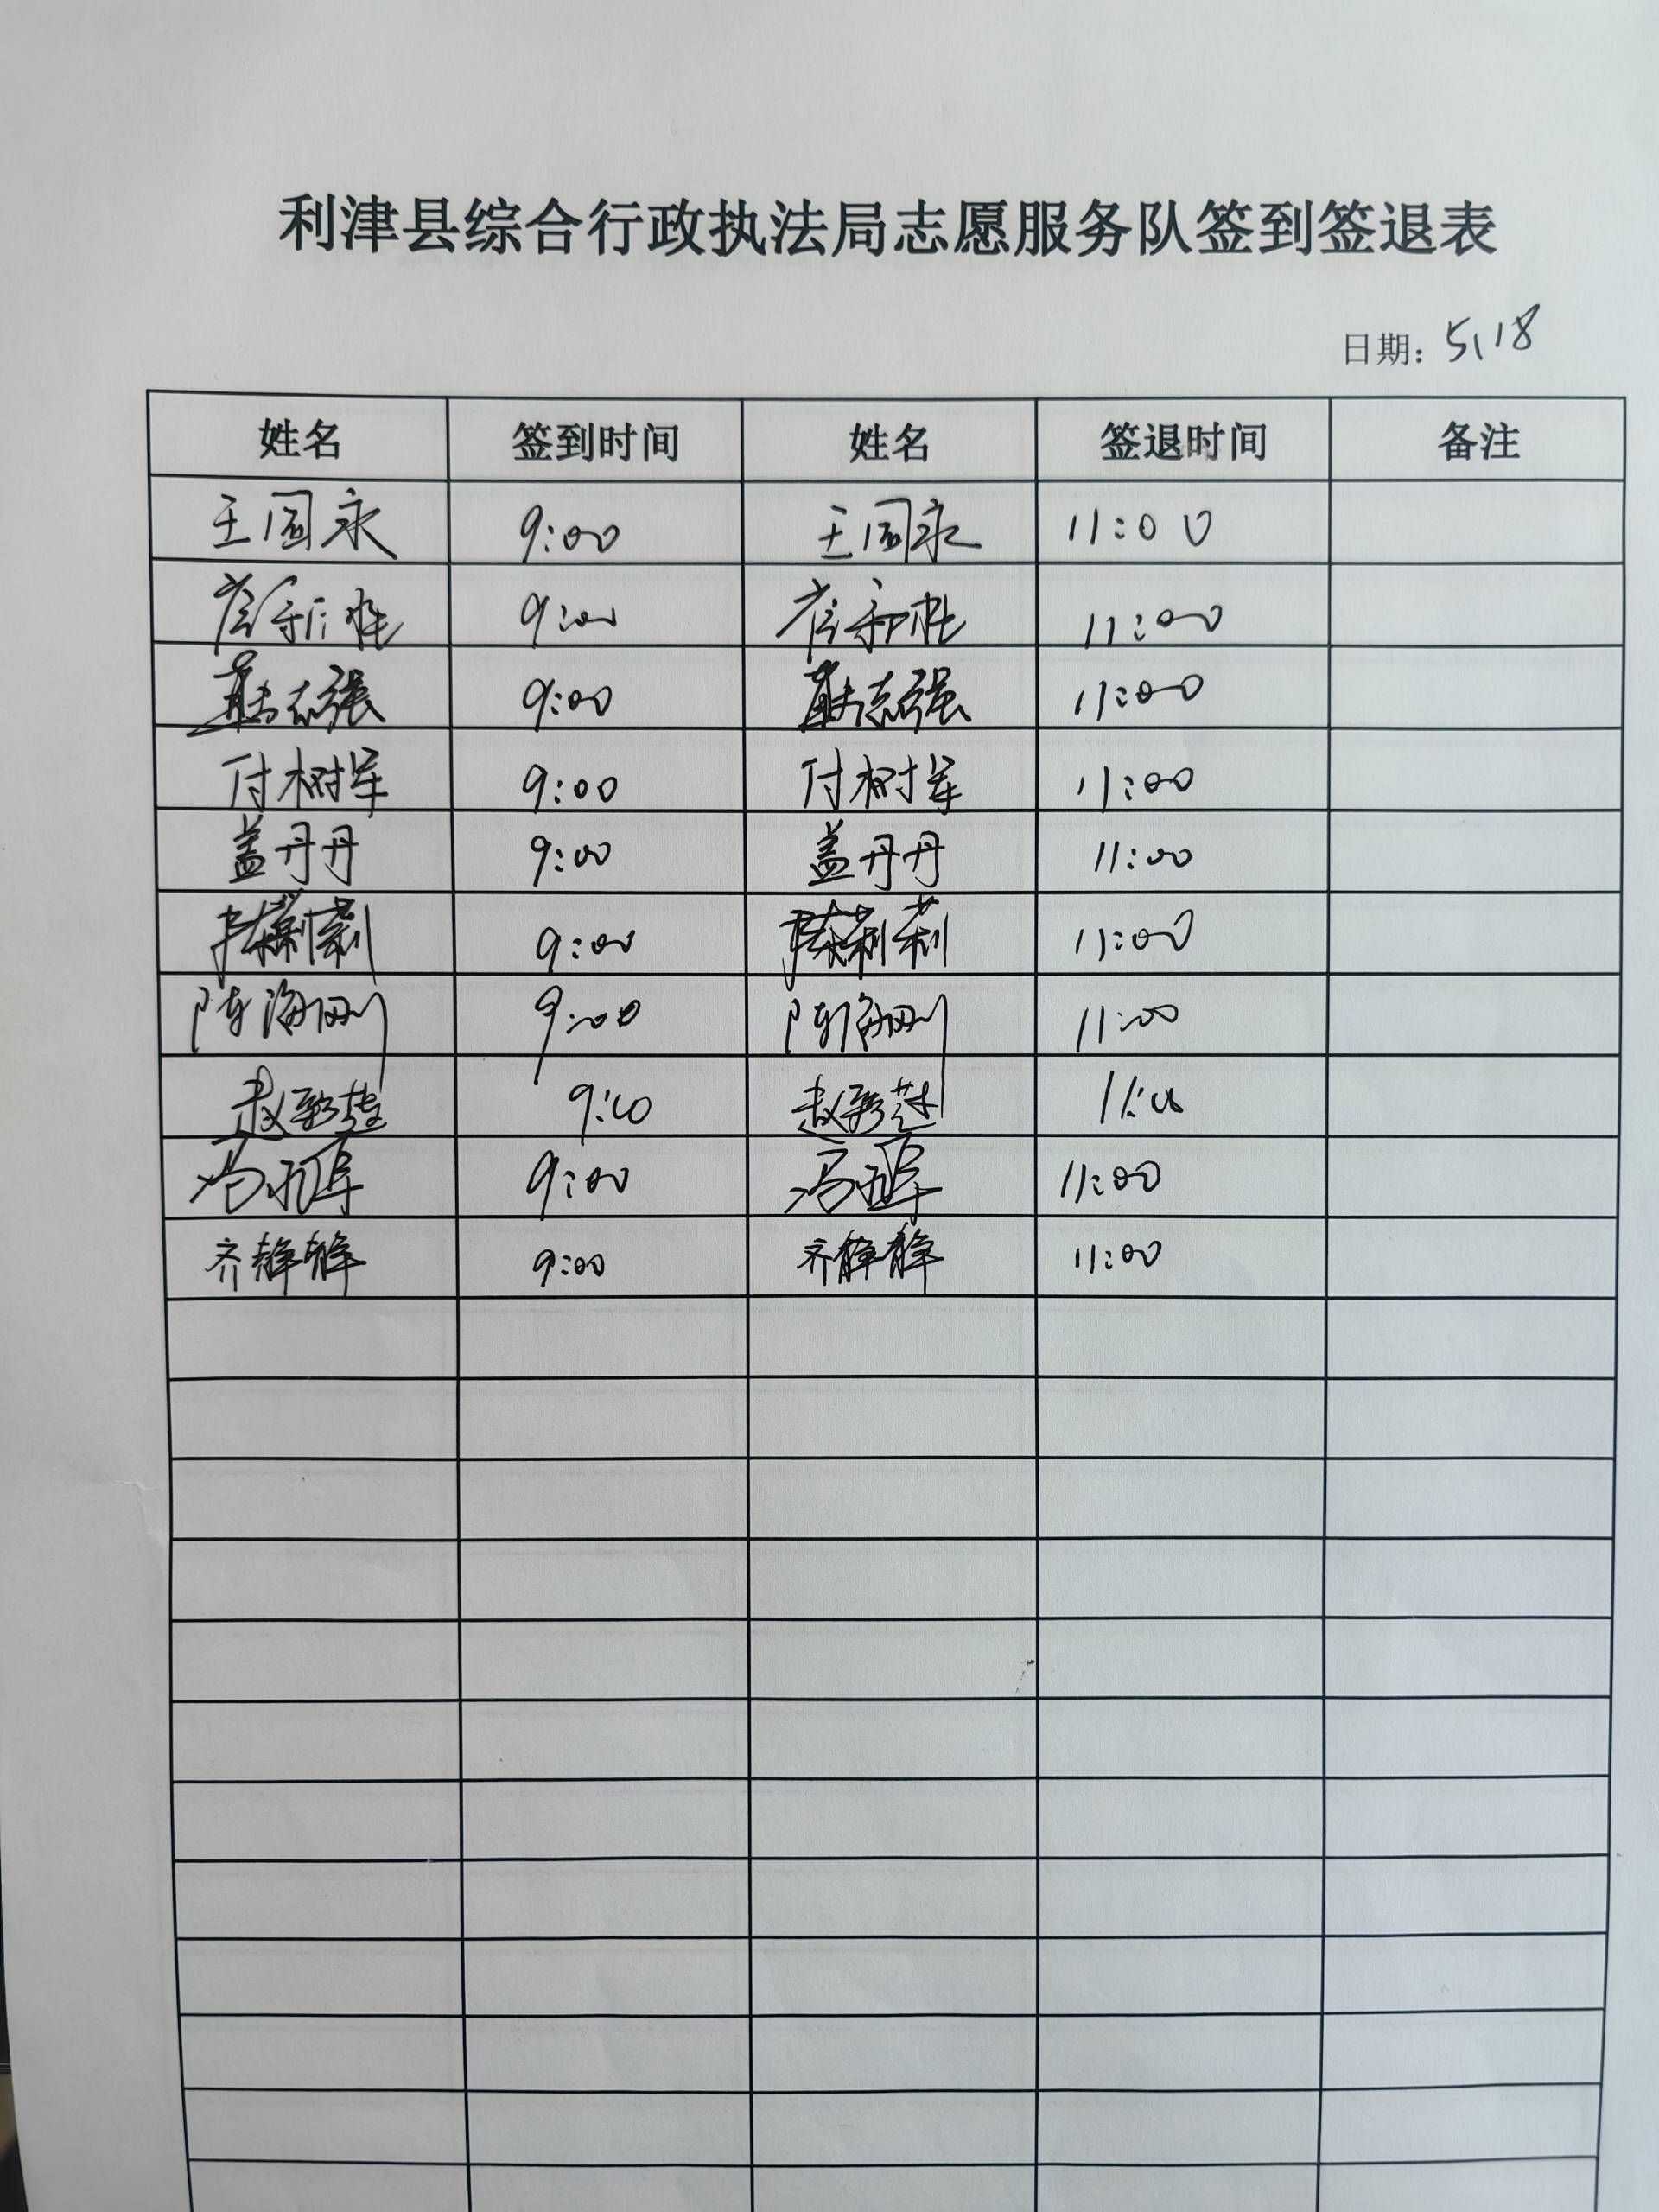 利津县综合行政执法局志愿服务队签到签退表
日期：5.18
姓名 签到时间 姓名 签退时间 备注
王国永 9:00 王国永 11:00
9:00 11:00
志强 9:00 志强 11:00
付树军 9:00 付树军 11:00
盖丹丹 9:00 盖丹丹 11:00
陈莉莉 9:00 陈莉莉 11:00
陈海刚 9:00 陈海刚 11:00
赵 9:00 赵 11:00
冯 9:00 冯 11:00
齐静静 9:00 齐静静 11:00